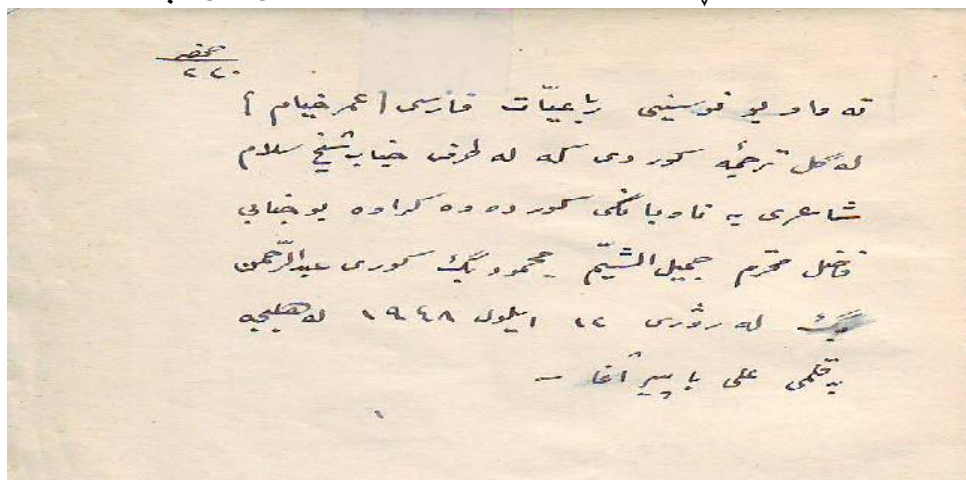 محضر
٢٢٠
ته ماو بو نوسینی رباعیّات فارسی [عمر خیام]
له گل ترجمه کوردی که له طرف جناب شیخ سلام
شاعری به ناوبانگی کورده وه کراوه بو جنابی
فاضل محترم جمیل الشیّم محمود بگ کوری عبدالرّحمن
بگ له روژی ١٢ ایلول ١٩٤٨ له هلبجه
به قلمی علی باپیر آغا –
١